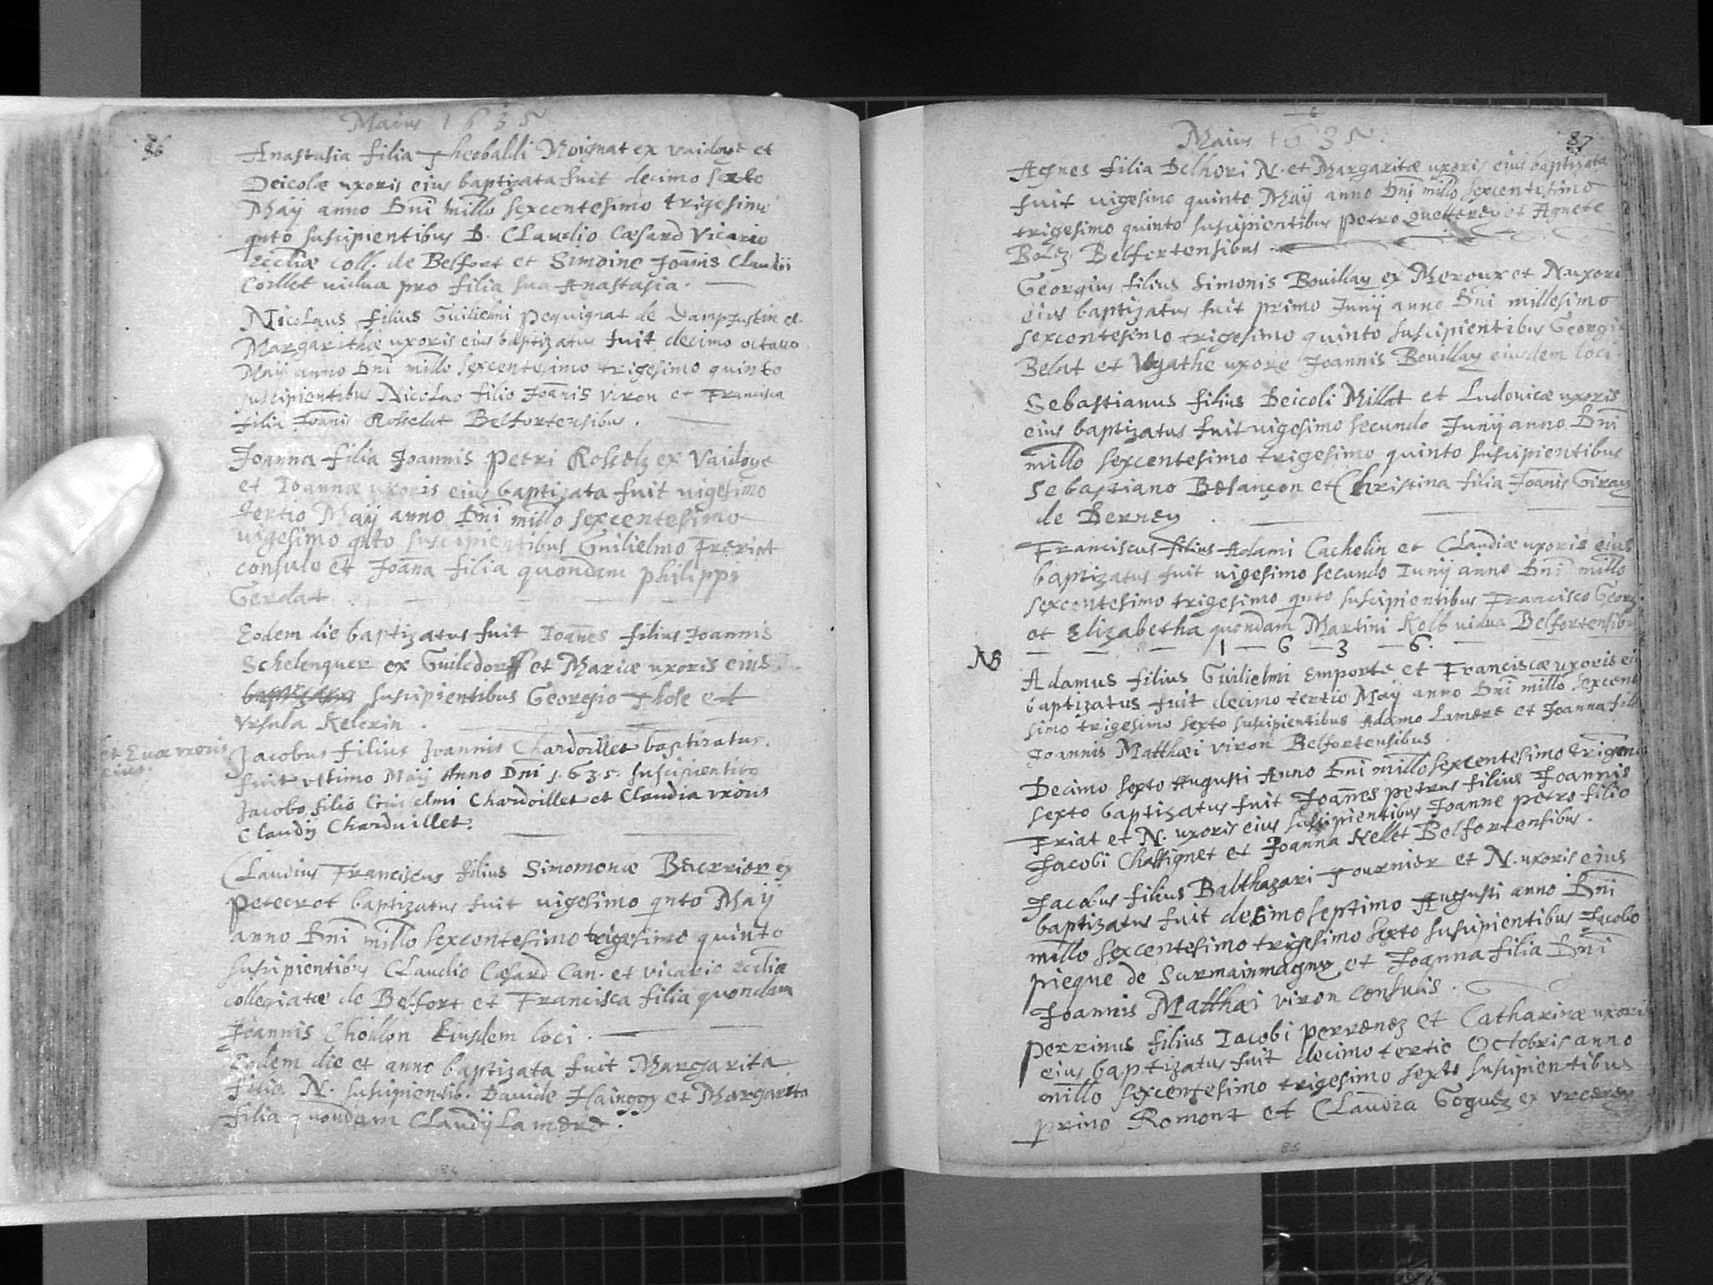 Maius 1635
86
Anastasia filia Theobaldi Noignat ex Vaidoye et
Deicolæ uxoris eius baptizata fuit decimo sexto
Maÿ anno Dnī millo sexcentesimo trigesimo
qnto suscipientibus D. Claudio Cæsard Vicario
Eccliæ coll. de Belfort et Simoine Joānis Claudii
Collet vidua pro filia sua Anastasia.
Nicolaus filius Guilielmi Pequignat de Dampjustin et
Margarethæ uxoris eius baptizatus fuit decimo octauo
Maÿ anno Dnī millo sexcentesimo trigesimo quinto
suscipientibus Nicolao filio Joānis Viron et Francisca
filia Joānis Rosselat Belfortensibus.
Joanna filia Joannis Petri Rosselz ex Vaidoye
et Joannæ uxoris eius baptizata fuit uigesimo
tertio Maÿ anno Dnī millo sexcentesimo
uigesimo qnto suscipientibus Guilielmo Freriat
consule et Joāna filia quondam Philippi
Gerdat
Eodem die baptizatus fuit Joānes filius Joannis
Schelenquer ex Guiledorff et Mariæ uxoris eius
baptizatus suscipientibus Georgio Those et
Vrsula Kelerin.
et Euæ vxoris
eius.
Jacobus filius Joannis Chardoillet baptizatus
fuit vltimo Maÿ Anno Dnī 1.635. suscipientib9
Jacobo filio Guilelmi Chardoillet et Claudia vxoris
Claudÿ Charduillet.
Claudius Franciscus filius Simomonæ Bourrier ex
Petecrot baptizatus fuit uigesimo qnto Maÿ
anno Dnī millo sexcentesimo trigesimo quinto
suscipientibus Claudio Cæsard Can. et vicario eccliæ
collegiatæ de Belfort et Francisca filia quondam
Joannis Choillon Eiusdem loci.
Eodem die et anno baptizata fuit Margarita
filia N. suscipientib. Dauide Hainggy et Margarita
filia quondam Claudÿ Lamere.
Maius 1635.
87
Agnes filia Delhori N. et Margaritæ uxoris eius baptizata
fuit uigesimo quinto Maÿ anno Dnī millo sexcentesimo
trigesimo quinto suscipientibus Petro Quetterey et Agnete
Bolez Belfortensibus
Georgius filius Simonis Bouillay ex Meroux et N. uxoris
eius baptizatus fuit primo Junÿ anno Dnī millesimo
sexcentesimo trigesimo quinto suscipientibus Georgio
Belat et Agathe uxore Joannis Bouillay eiusdem loci.
Sebastianus filius Deicoli Millot et Ludouicæ uxoris
eius baptizatus fuit uigesimo secundo Junÿ anno Dnī
millo sexcentesimo trigesimo quinto suscipientibus
Sebastiano Besançon et Christina filia Joānis Giray
de Derney
Franciscus filius Adami Cachelin et Claudiæ uxoris eius
baptizatus fuit uigesimo secundo Junÿ anno Dnī millo
sexcentesimo trigesimo qnto suscipientibus Francisco Georg
et Elizabetha quondam Martini Kolb vidua Belfortensibus
1 — 6 — 3 — 6.
NB
Adamus filius Guilielmi Emporte et Franciscæ uxoris ei
baptizatus fuit decimo tertio Maÿ anno Dnī millo sexcente
simo trigesimo sexto suscipientibus Adamo Lamere et Joanna fil
Joannis Matthæi Viron Belfortensibus.
Decimo sexto Augusti Anno Dnī millo sexcentesimo trigesi
sexto baptizatus fuit Joannes Petrus filius Joannis
Friat et N. uxoris eius suscipientibus Joanne Petro filio
Jacobi Chassignet et Joanna Kellet Belfortensibus.
Jacobus filius Balthazari Tournier et N. uxoris eius
baptizatus fuit decimo septimo Augusti anno Dnī
millo sexcentesimo trigesimo sexto suscipientibus Jacobo
Pieque de Surmainmagny et Joanna filia Dnī
Joannis Matthæi Viron Consulis.
Perrinus filius Jacobi Perrenez et Catharinæ uxoris
eius baptizatus fuit decimo tertio Octobris anno
millo sexcentesimo trigesimo sexto suscipientibus
prino Romont et Claudia Goguez ex vrcerey